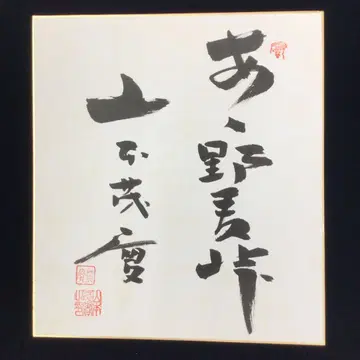 あゝ野麦峠
山本茂実